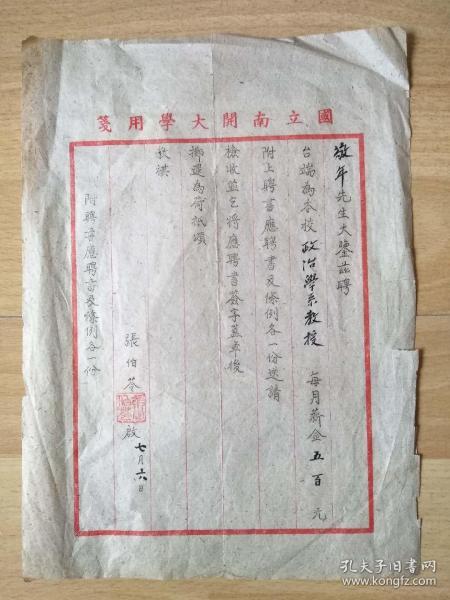 國立南開大學用箋
敬年先生大鑒茲聘
台端為本校政治學系教授 每月薪金五百元
附上聘書應聘書及條例各一份送請
檢收並乞將應聘書簽字蓋章後
擲還為荷祗頌
教祺
張伯苓 啟 七月六日
附聘書應聘書及條例各一份
孔夫子旧书网
www.kongfz.com